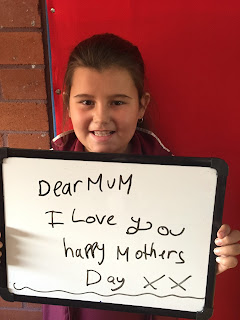 Dear MuM
I Love you
happy Mothers
Day XX